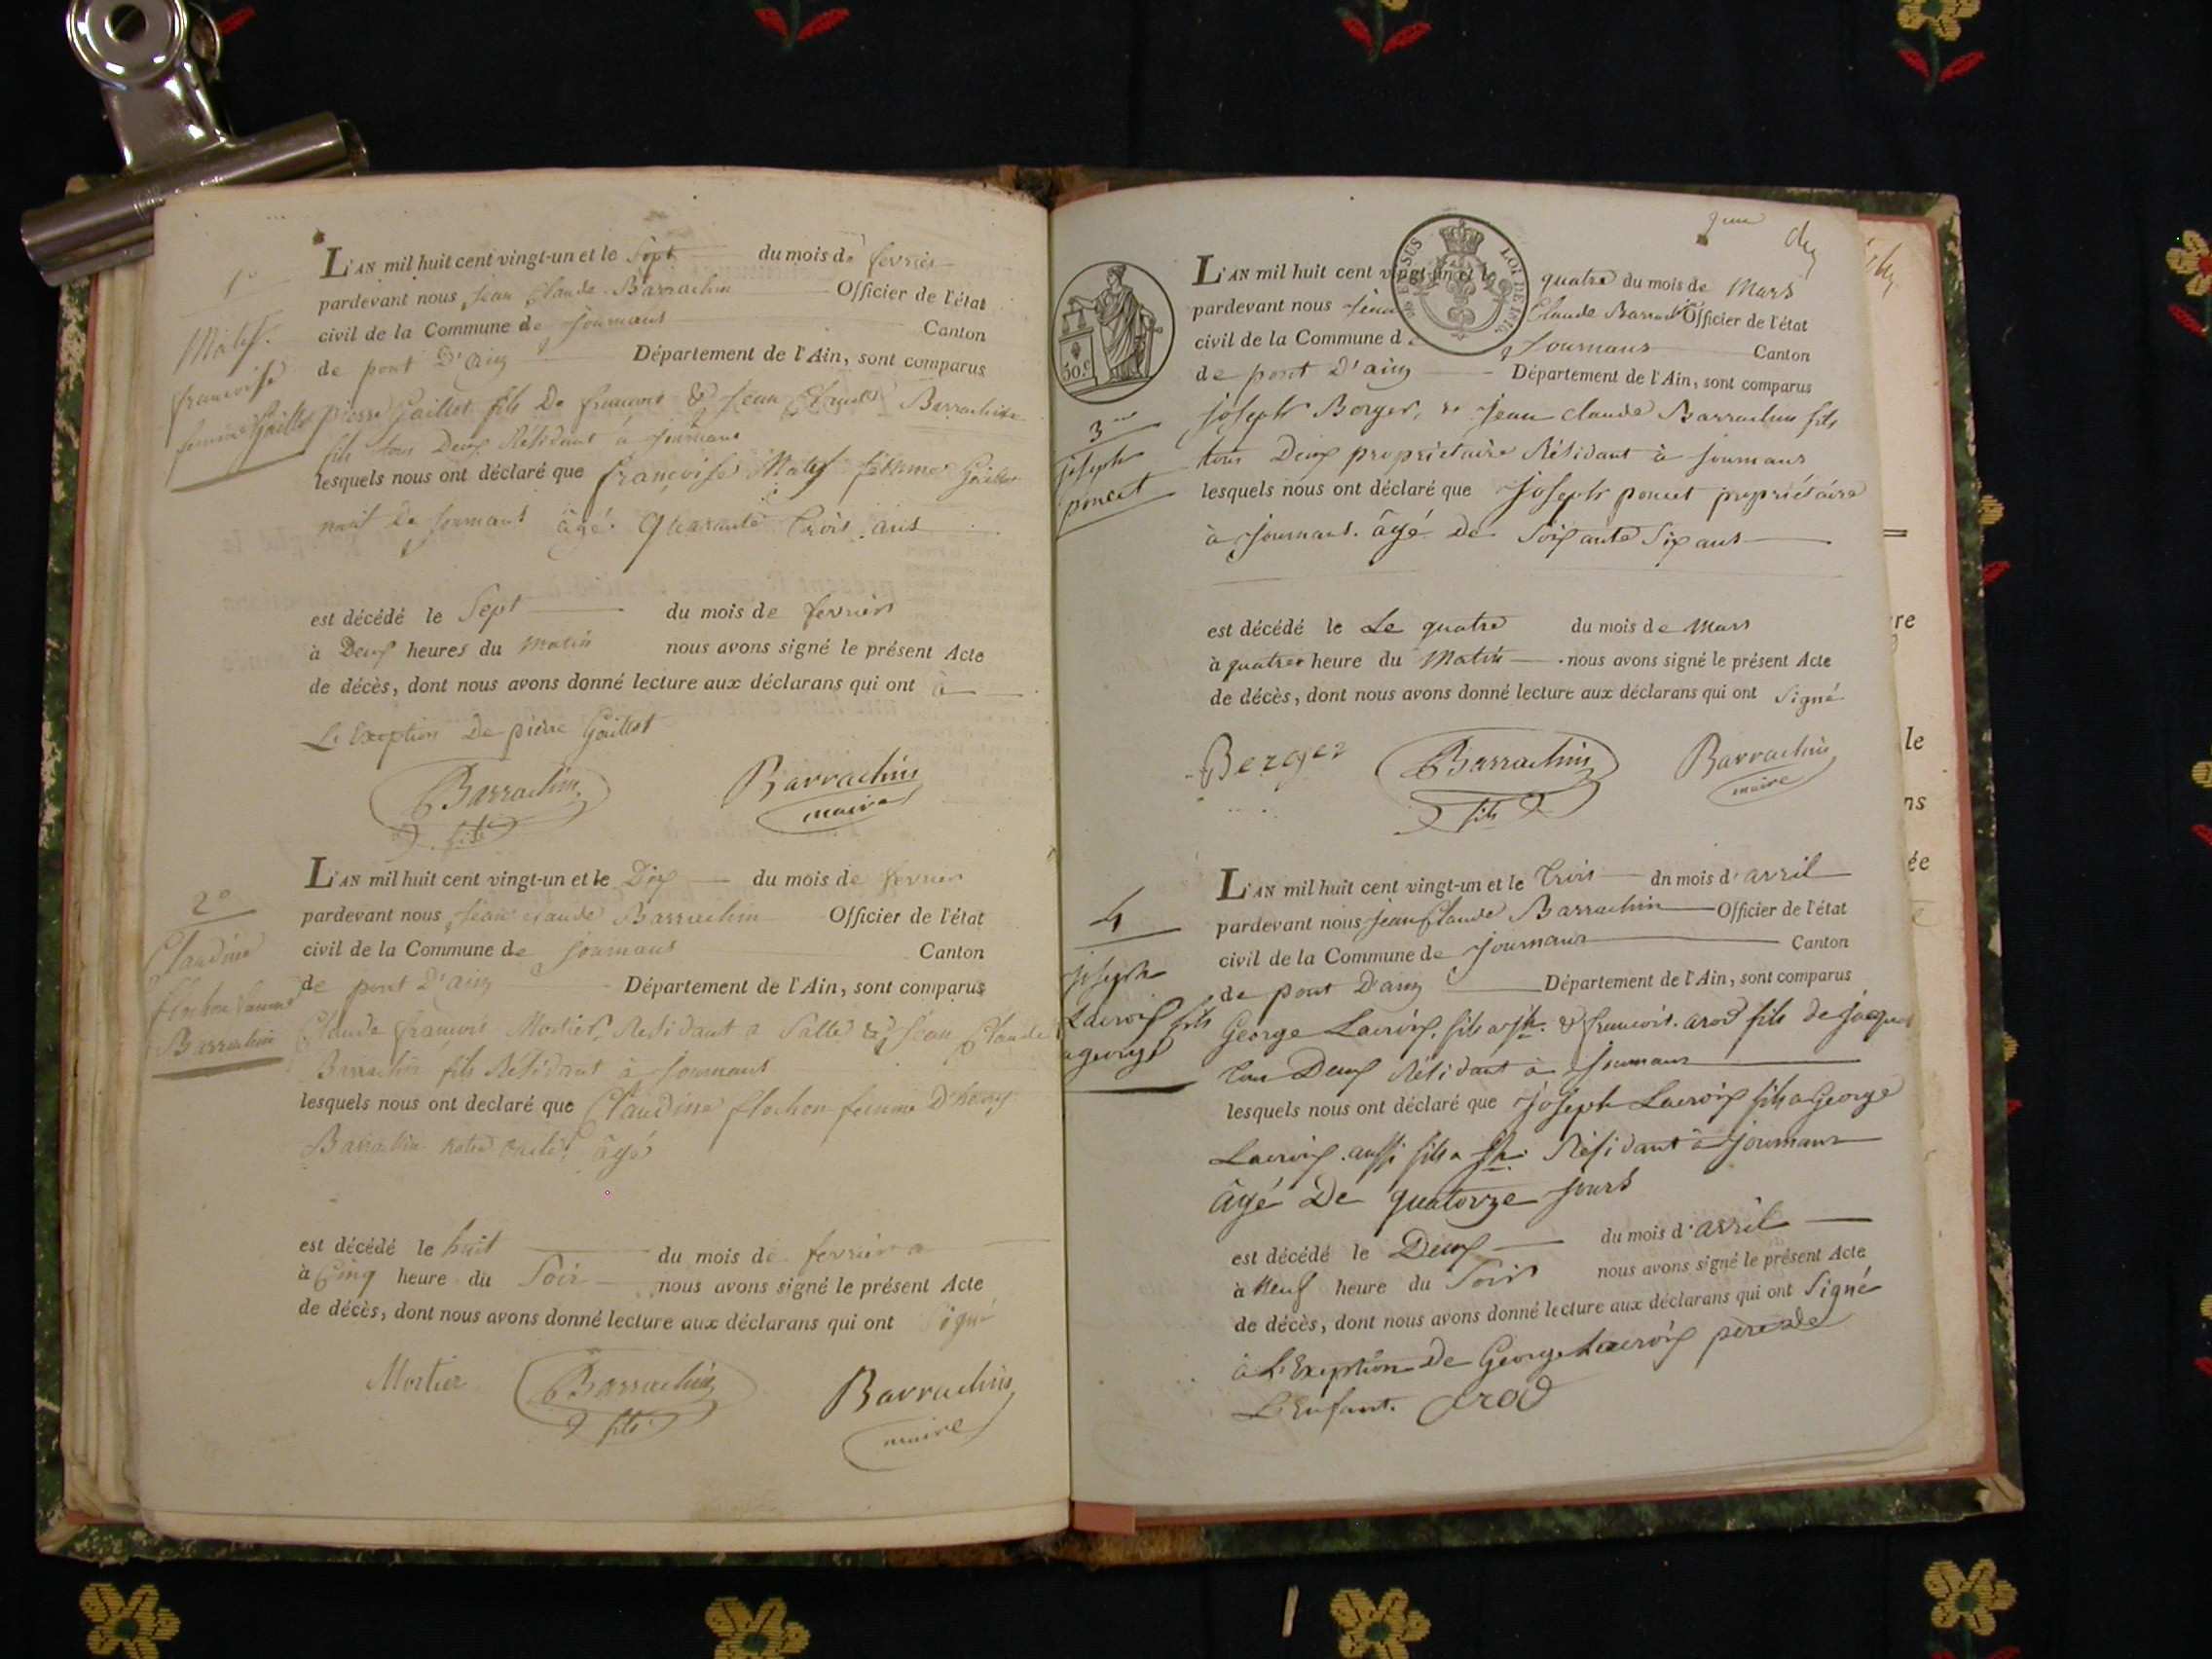 1°
Matef.
francoise
femme Gaillot
L'AN mil huit cent vingt-un et le Sept du mois de fevrier
pardevant nous Jean Claude Barrachin Officier de l'état
civil de la Commune de Journans Canton
de pont D'ain Département de l'Ain, sont comparus
pierre Gaillot fils De francois & Jean Claude Barrachin
fils tous Deux Résidant à Journans
lesquels nous ont déclaré que françoise Matef femme Gaillot
natif de Journans âgé Quarante trois ans
est décédé le Sept du mois de fevrier
à Deux heures du matin nous avons signé le présent Acte
de décès, dont nous avons donné lecture aux déclarans qui ont à
L'Exeption De pierre Gaillot
Barrachin fils
Barrachin maire
2°
Claudine
flochon femme
Barrachin
L'AN mil huit cent vingt-un et le Dix du mois de fevrier
pardevant nous Jean Claude Barrachin Officier de l'état
civil de la Commune de Journans Canton
de pont D'ain Département de l'Ain, sont comparus
Claude francois Mortier Residant a Salle & Jean Claude
Barrachin fils Résidant à Journans
lesquels nous ont declaré que Claudine flochon femme
Barrachin âgé
est décédé le huit du mois de fevrier
à Cinq heure du Soir nous avons signé le présent Acte
de décès, dont nous avons donné lecture aux déclarans qui ont Signé
Mortier
Barrachin fils
Barrachin maire
30.C
LOI DE 1816
L'AN mil huit cent vingt-un et le quatre du mois de Mars
pardevant nous Jean Claude Barrachin Officier de l'état
civil de la Commune d Journans Canton
de pont D'ain Département de l'Ain, sont comparus
3
joseph
poncet
Joseph Berger, & Jean claude Barrachin fils
tous Deux proprietaire Résidant à Journans
lesquels nous ont déclaré que Joseph poncet propriétaire
à Journans. âgé De Soixante Six ans
est décédé le Le quatre du mois de Mars
à quatre heure du Matin nous avons signé le présent Acte
de décès, dont nous avons donné lecture aux déclarans qui ont Signé
Berger
Barrachin fils
Barrachin maire
4
joseph
Lacroix fils
a george
L'AN mil huit cent vingt-un et le trois dn mois d'avril
pardevant nous Jean Claude Barrachin Officier de l'état
civil de la Commune de Journans Canton
de pont D'ain Département de l'Ain, sont comparus
George Lacroix, fils a jh. & francois arod fils de jacques
tous Deux Résidant à Journans
lesquels nous ont déclaré que Joseph Lacroix fils a George
Lacroix aussi fils a jh. Résidant à Journans
âgé De quatorze jours
est décédé le Deux du mois d'avril
à Neuf heure du Soir nous avons signé le présent Acte
de décès, dont nous avons donné lecture aux déclarans qui ont Signé
à L'Exeption De George Lacroix père de
L'Enfant. arod
re
le
ns
ée